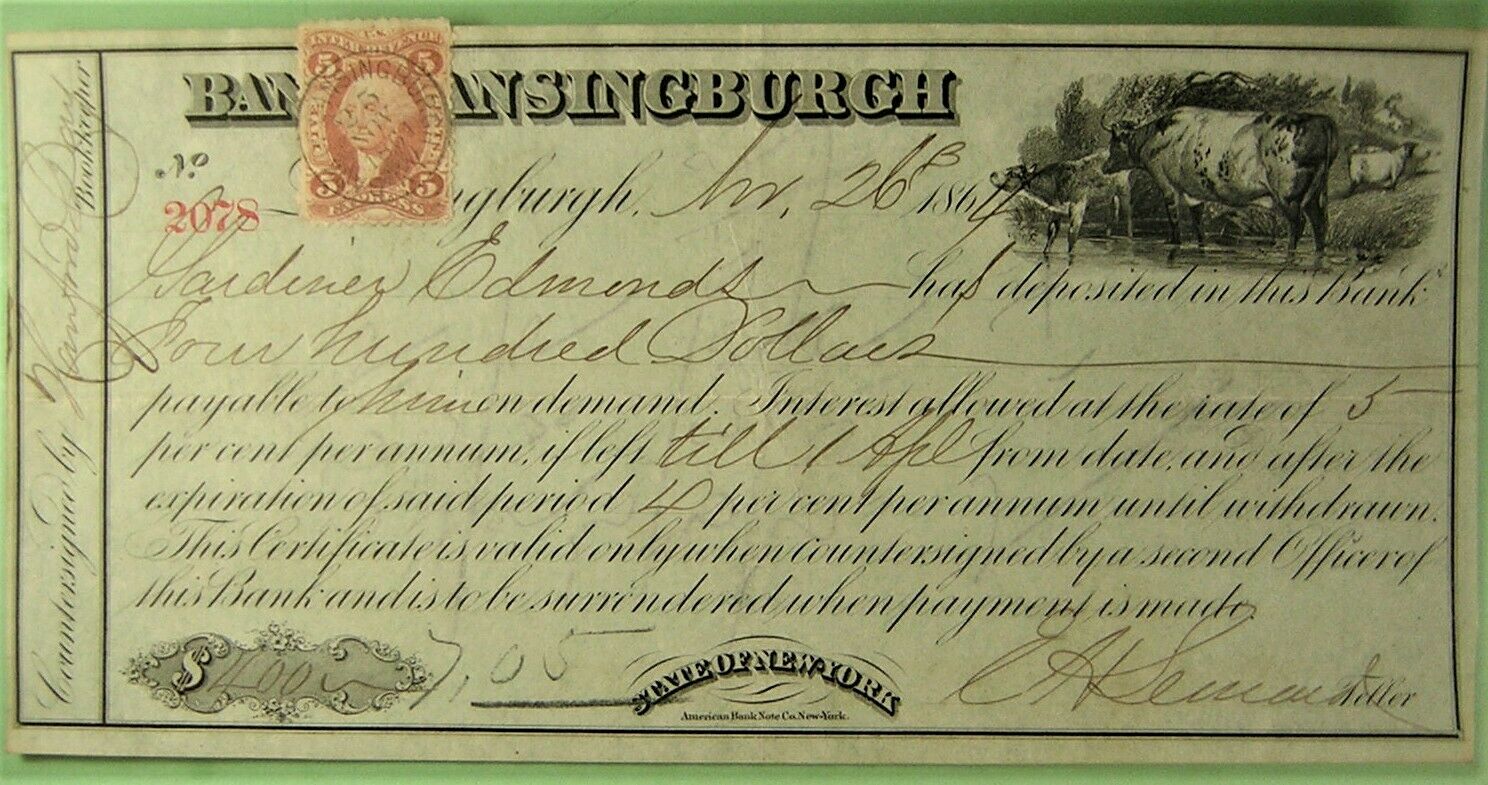 BAN ANSINGBURGH
U.S.
INTER. REVENUE
5 5
FIVE CENTS
5 5
EXPRESS
No
2078
ngburgh, Nov, 26th 1864
Gardiner Edmonds has deposited in this Bank
Four hundred Dollars
payable to him on demand. Interest allowed at the rate of 5
per cent per annum, if left till 1 Apl from date, and after the
expiration of said period 4 per cent per annum until withdrawn.
This Certificate is valid only when countersigned by a second Officer of
this Bank and is to be surrendered when payment is made.
$ 400 7,05
STATE OF NEW-YORK
American Bank Note Co. New-York.
Teller
Countersigned by Bookkeeper